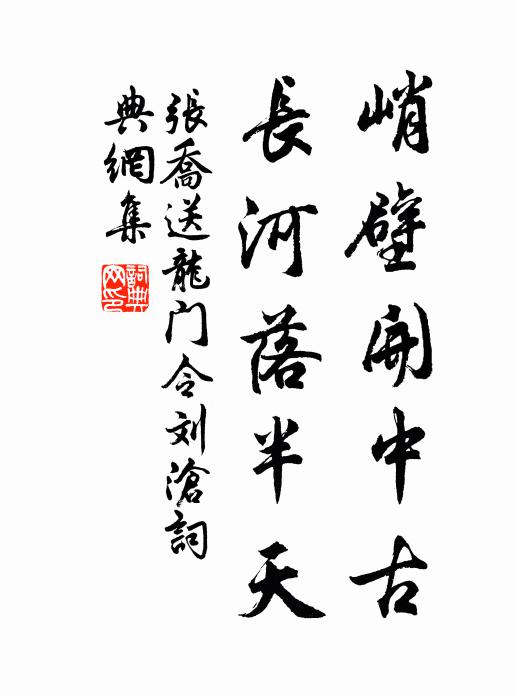 峭壁開中古
長河落半天
張喬送龍門令刘滄詞
典網集
詞典
网印